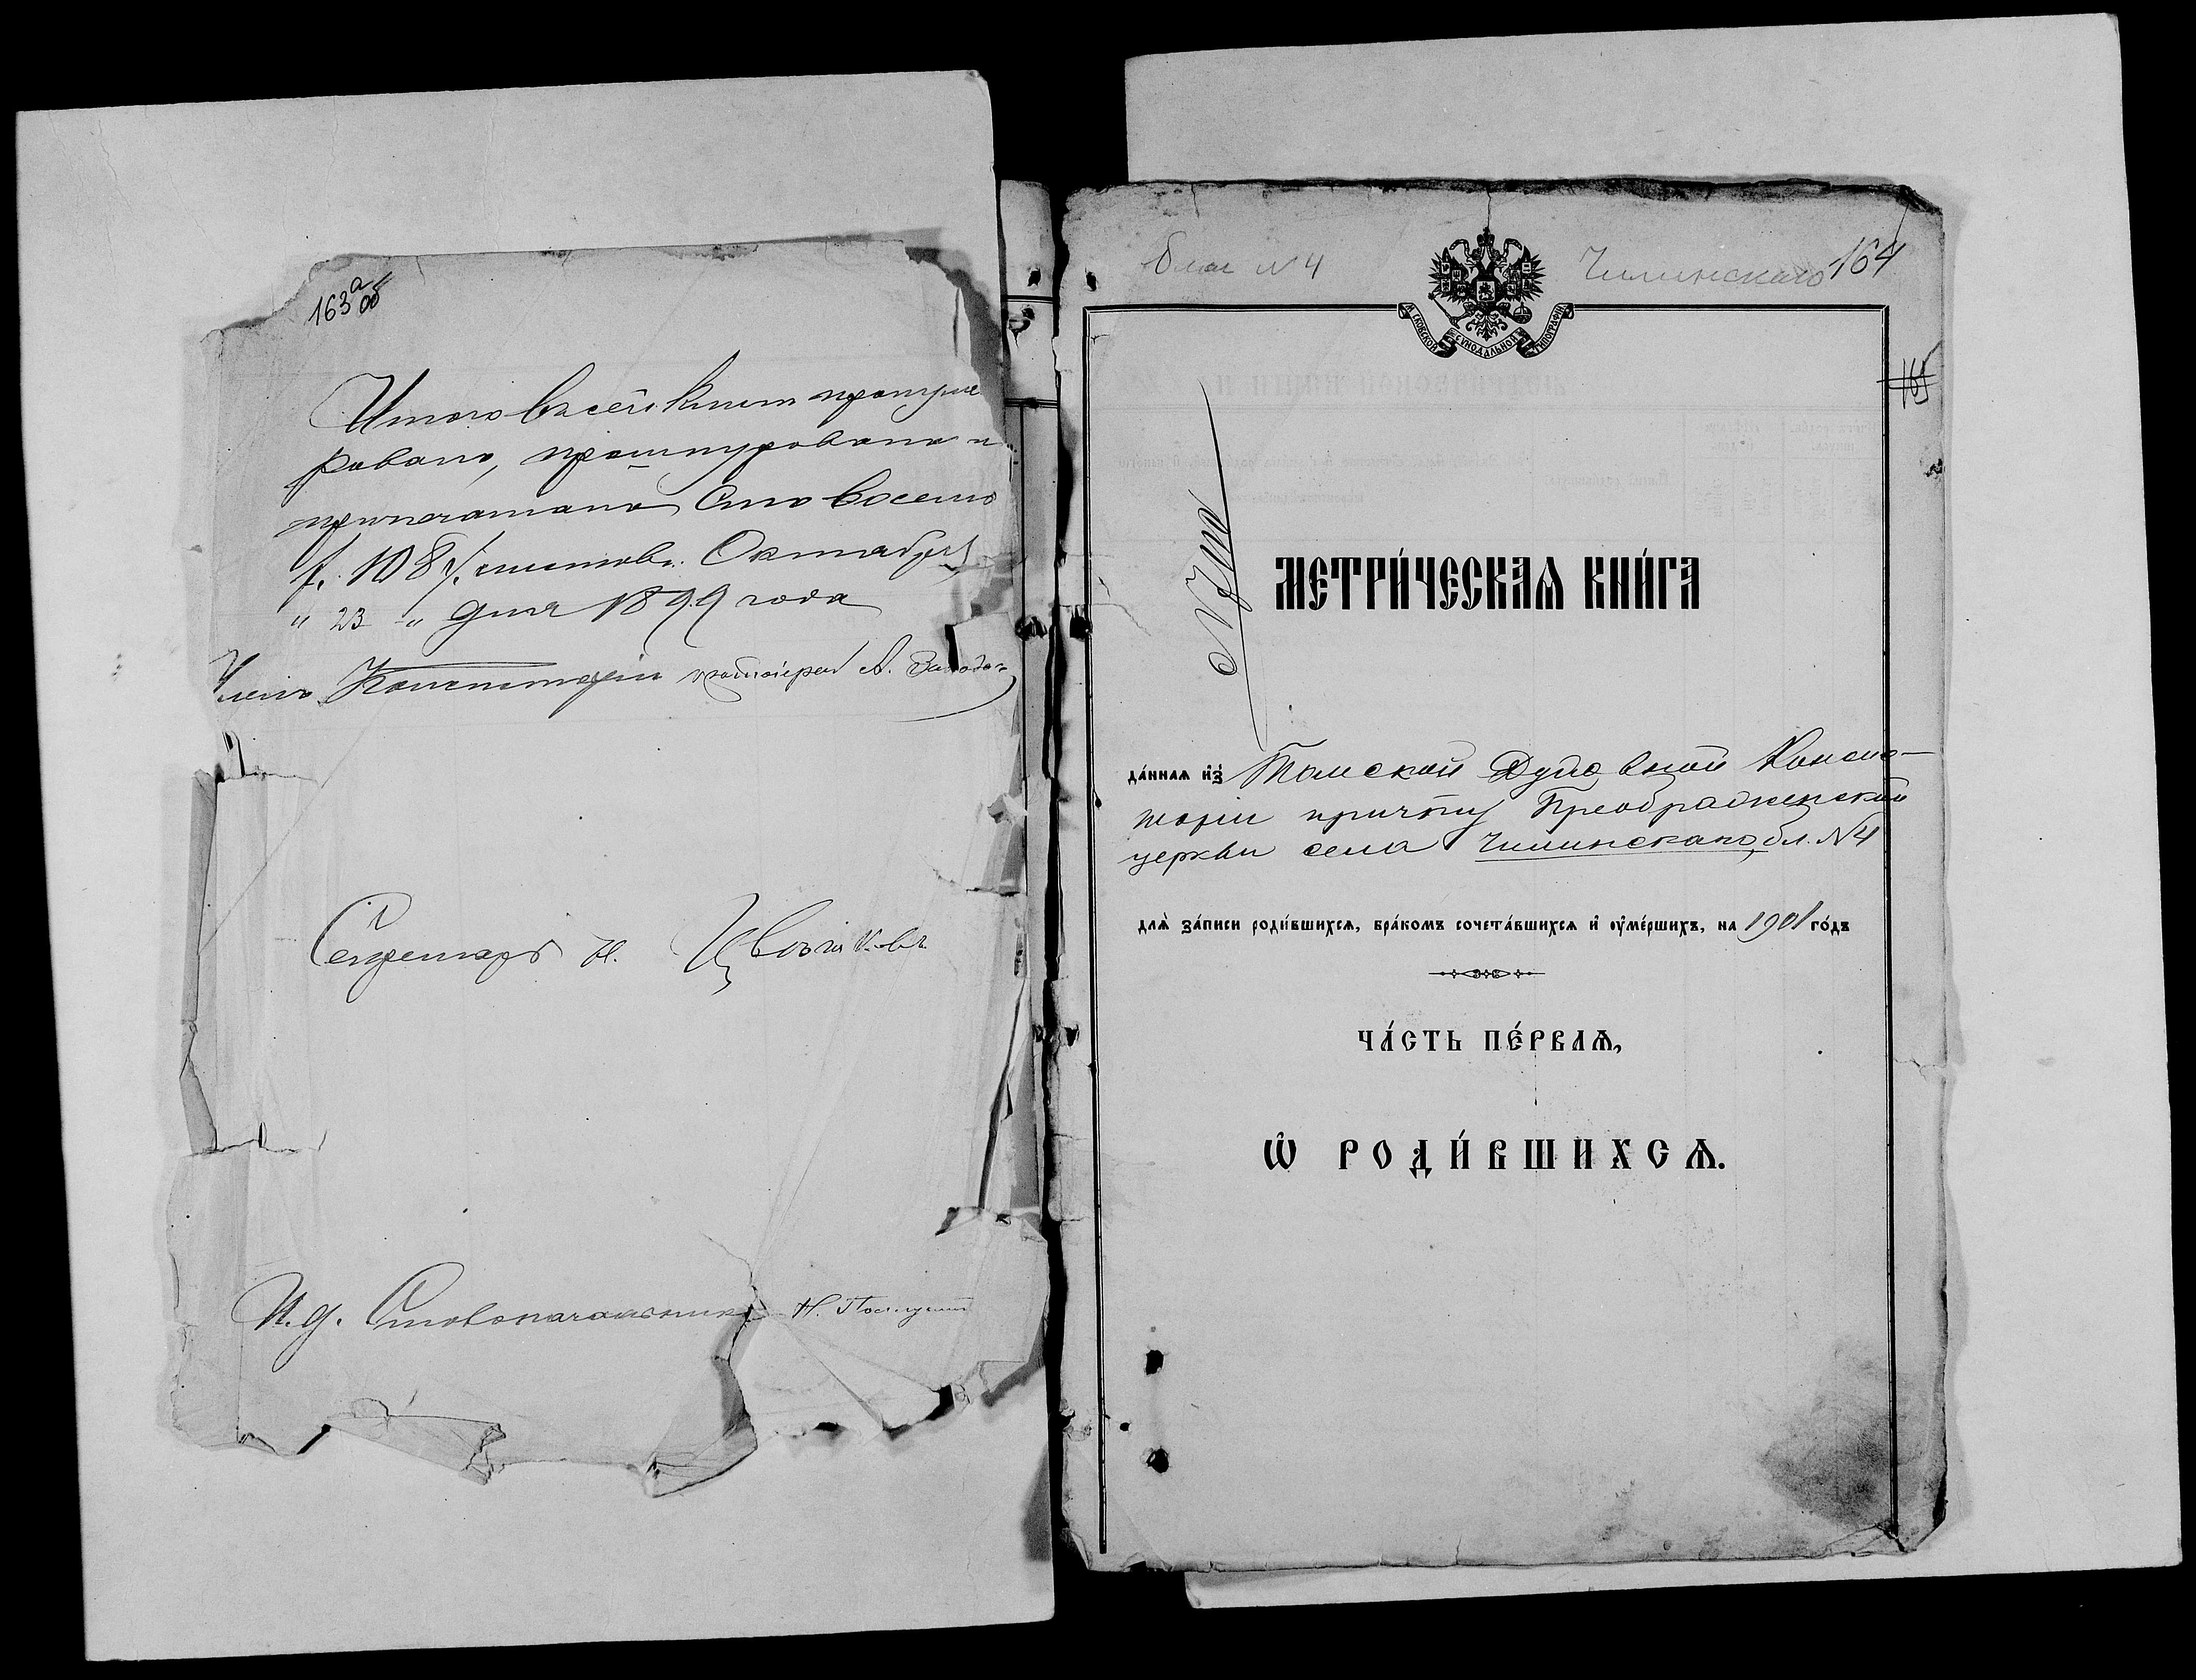 163а об
Итого въ сей книге пронуме
ровано, прошнуровано и
припечатано Сто восемь
/. 108 /. листовъ. Октября
" 23 " дня 1899 года
Членъ Консисторіи протоіерей А.
Секретарь Н.
И. д. Столоначальника Н.
благ №4
Чилинскаго 164
165
МОСКОВСКОЙ СУНОДАЛЬНОЙ ТИПОГРАФІИ
МЕТРИ́ЧЕСКАѦ КНИ́ГА
да́ннаѧ и҆з̾ Томской Духовной Консис-
торіи причту Преображенской
церкви села Чилинскаго, бл. №4
длѧ̀ за́писи роди́вшихсѧ, бра́комъ сочета́вшихсѧ и҆ ѹ҆ме́ршихъ, на 1901 го́дъ
ЧА́СТЬ ПЕ́РВАѦ,
Ѡ҆ РОДИ́ВШИХСѦ.